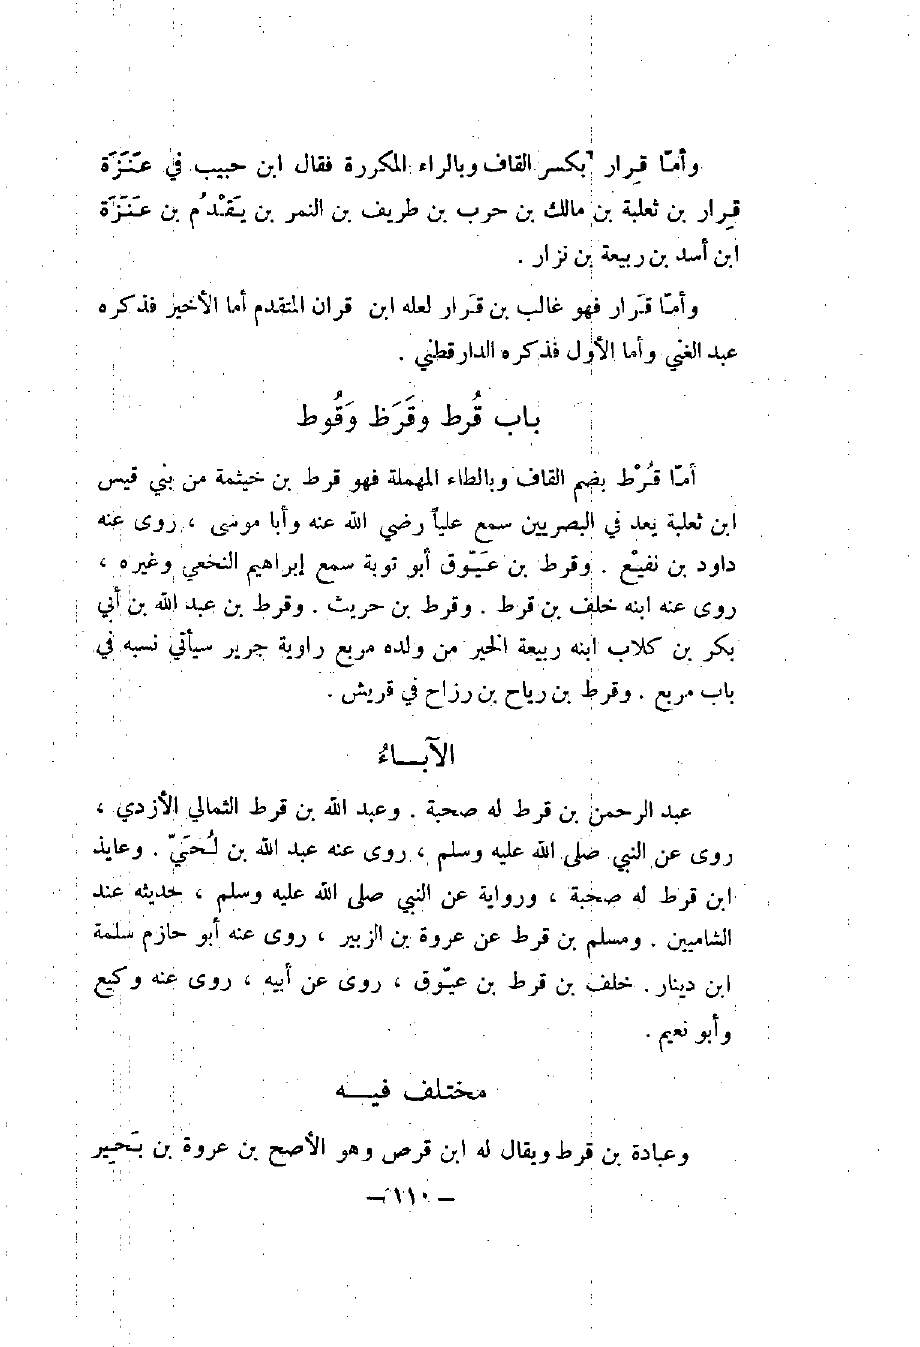 وأمّا قِرار بكسر القاف وبالراء المكررة فقال ابن حبيب في عَنَزَة
قِرار بن ثعلبة بن مالك بن حرب بن طريف بن النمر بن يَقْدُم بن عَنَزَة
ابن أسد بن ربيعة بن نزار .
وأمّا قَرار فهو غالب بن قَرار لعله ابن قران المتقدم أما الأخير فذكره
عبد الغني وأما الأول فذكره الدارقطني .
باب قُرط وقَرَظ وَقُوط
أمّا قُرْط بضم القاف وبالطاء المهملة فهو قرط بن خيثمة من بني قيس
ابن ثعلبة يعد في البصريين سمع علياً رضي الله عنه وأبا موسى ، روى عنه
داود بن نفيْع . وقرط بن عَيّوق أبو توبة سمع إبراهيم النخعي وغيره ،
روى عنه ابنه خلف بن قرط . وقرط بن حريث . وقرط بن عبد الله بن أبي
بكر بن كلاب ابنه ربيعة الخير من ولده مربع راوية جرير سيأتي نسبه في
باب مربع . وقرط بن رياح بن رزاح في قريش .
الآبـاءُ
عبد الرحمن بن قرط له صحبة . وعبد الله بن قرط الثمالي الأزدي ،
روى عن النبي صلى الله عليه وسلم ، روى عنه عبد الله بن لُحَيّ . وعايذ
ابن قرط له صحبة ، ورواية عن النبي صلى الله عليه وسلم ، حديثه عند
الشاميين . ومسلم بن قرط عن عروة بن الزبير ، روى عنه أبو حازم سلمة
ابن دينار . خلف بن قرط بن عيّوق ، روى عن أبيه ، روى عنه وكيع
وأبو نعيم .
مختلف فيـه
وعبادة بن قرط ويقال له ابن قرص وهو الأصح بن عروة بن بَحير
– ١١٠ –